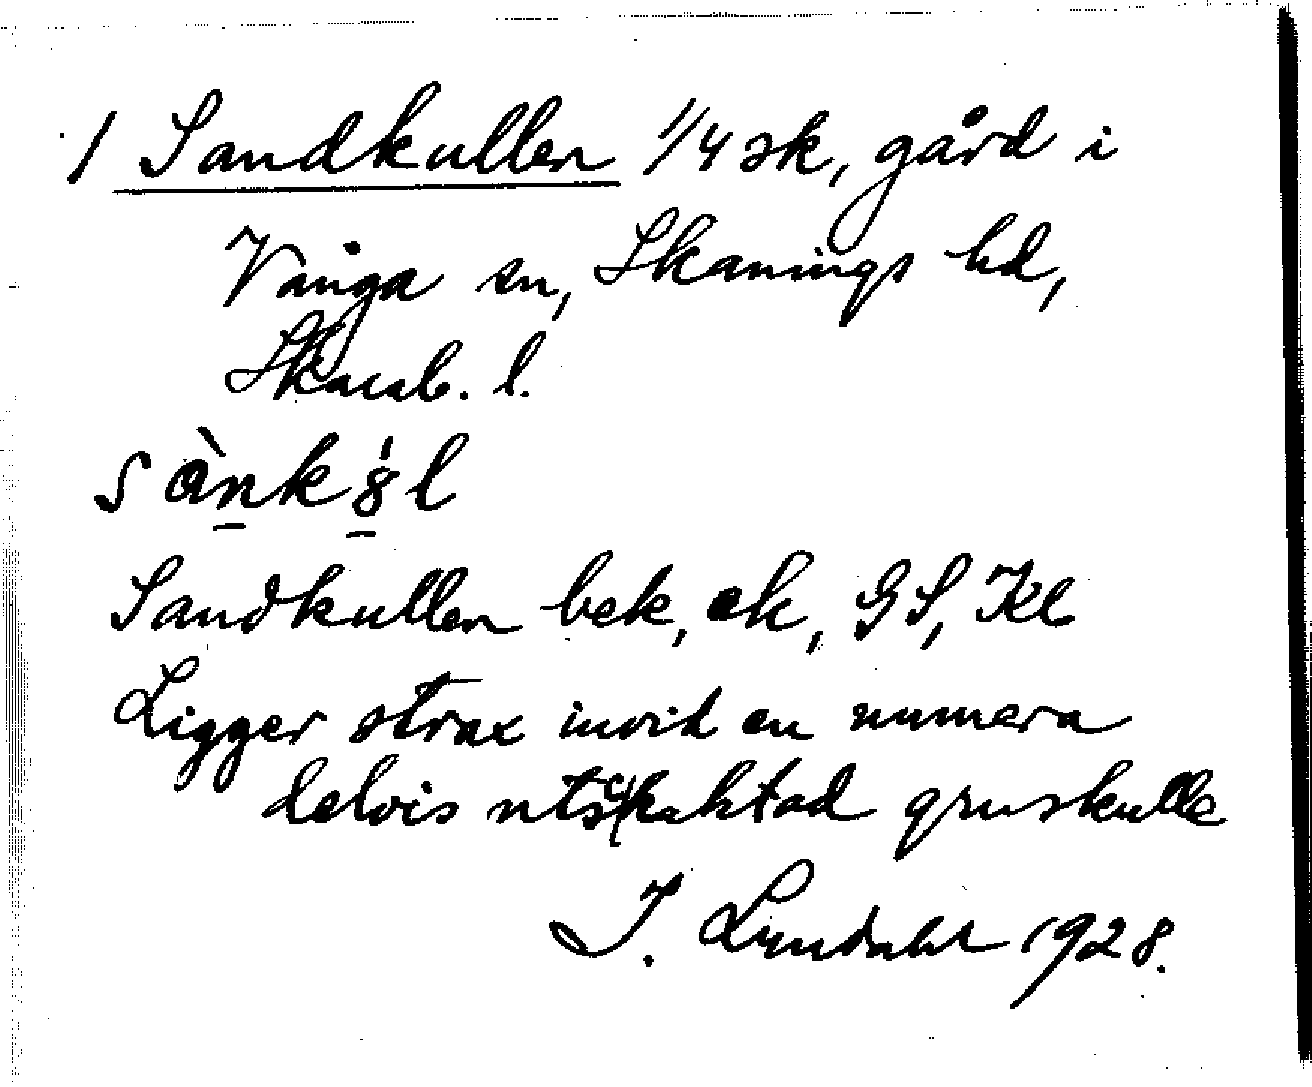 1 Sandkullen 1/4 sk, gård i
Vånga sn, Skånings hd,
Skarab. l.
sànk8̍l
Sandkullen bek, ek, GS, Kl
Ligger strax invid en numera
delvis utschaktad gruskulle
I. Lundahl 1928.